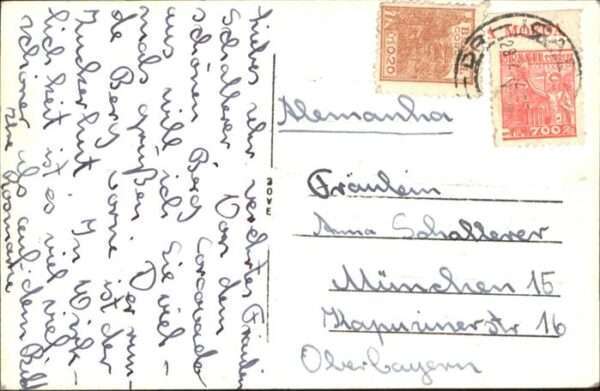 Liebes sehr verehrtes Fräulein
Schallerer. Von dem
schönen Berg Corcovado
aus will ich Sie viel-
mals grüßen. Der run-
de Berg vorne ist der
Zuckerhut. In Wirk-
lichkeit ist es viel viel
schöner als auf dem Bild
Ihre Rosmarie
Alemanha
Fräulein
Anna Schallerer
München 15
Kapuzinerstr 16
Oberbayern
700